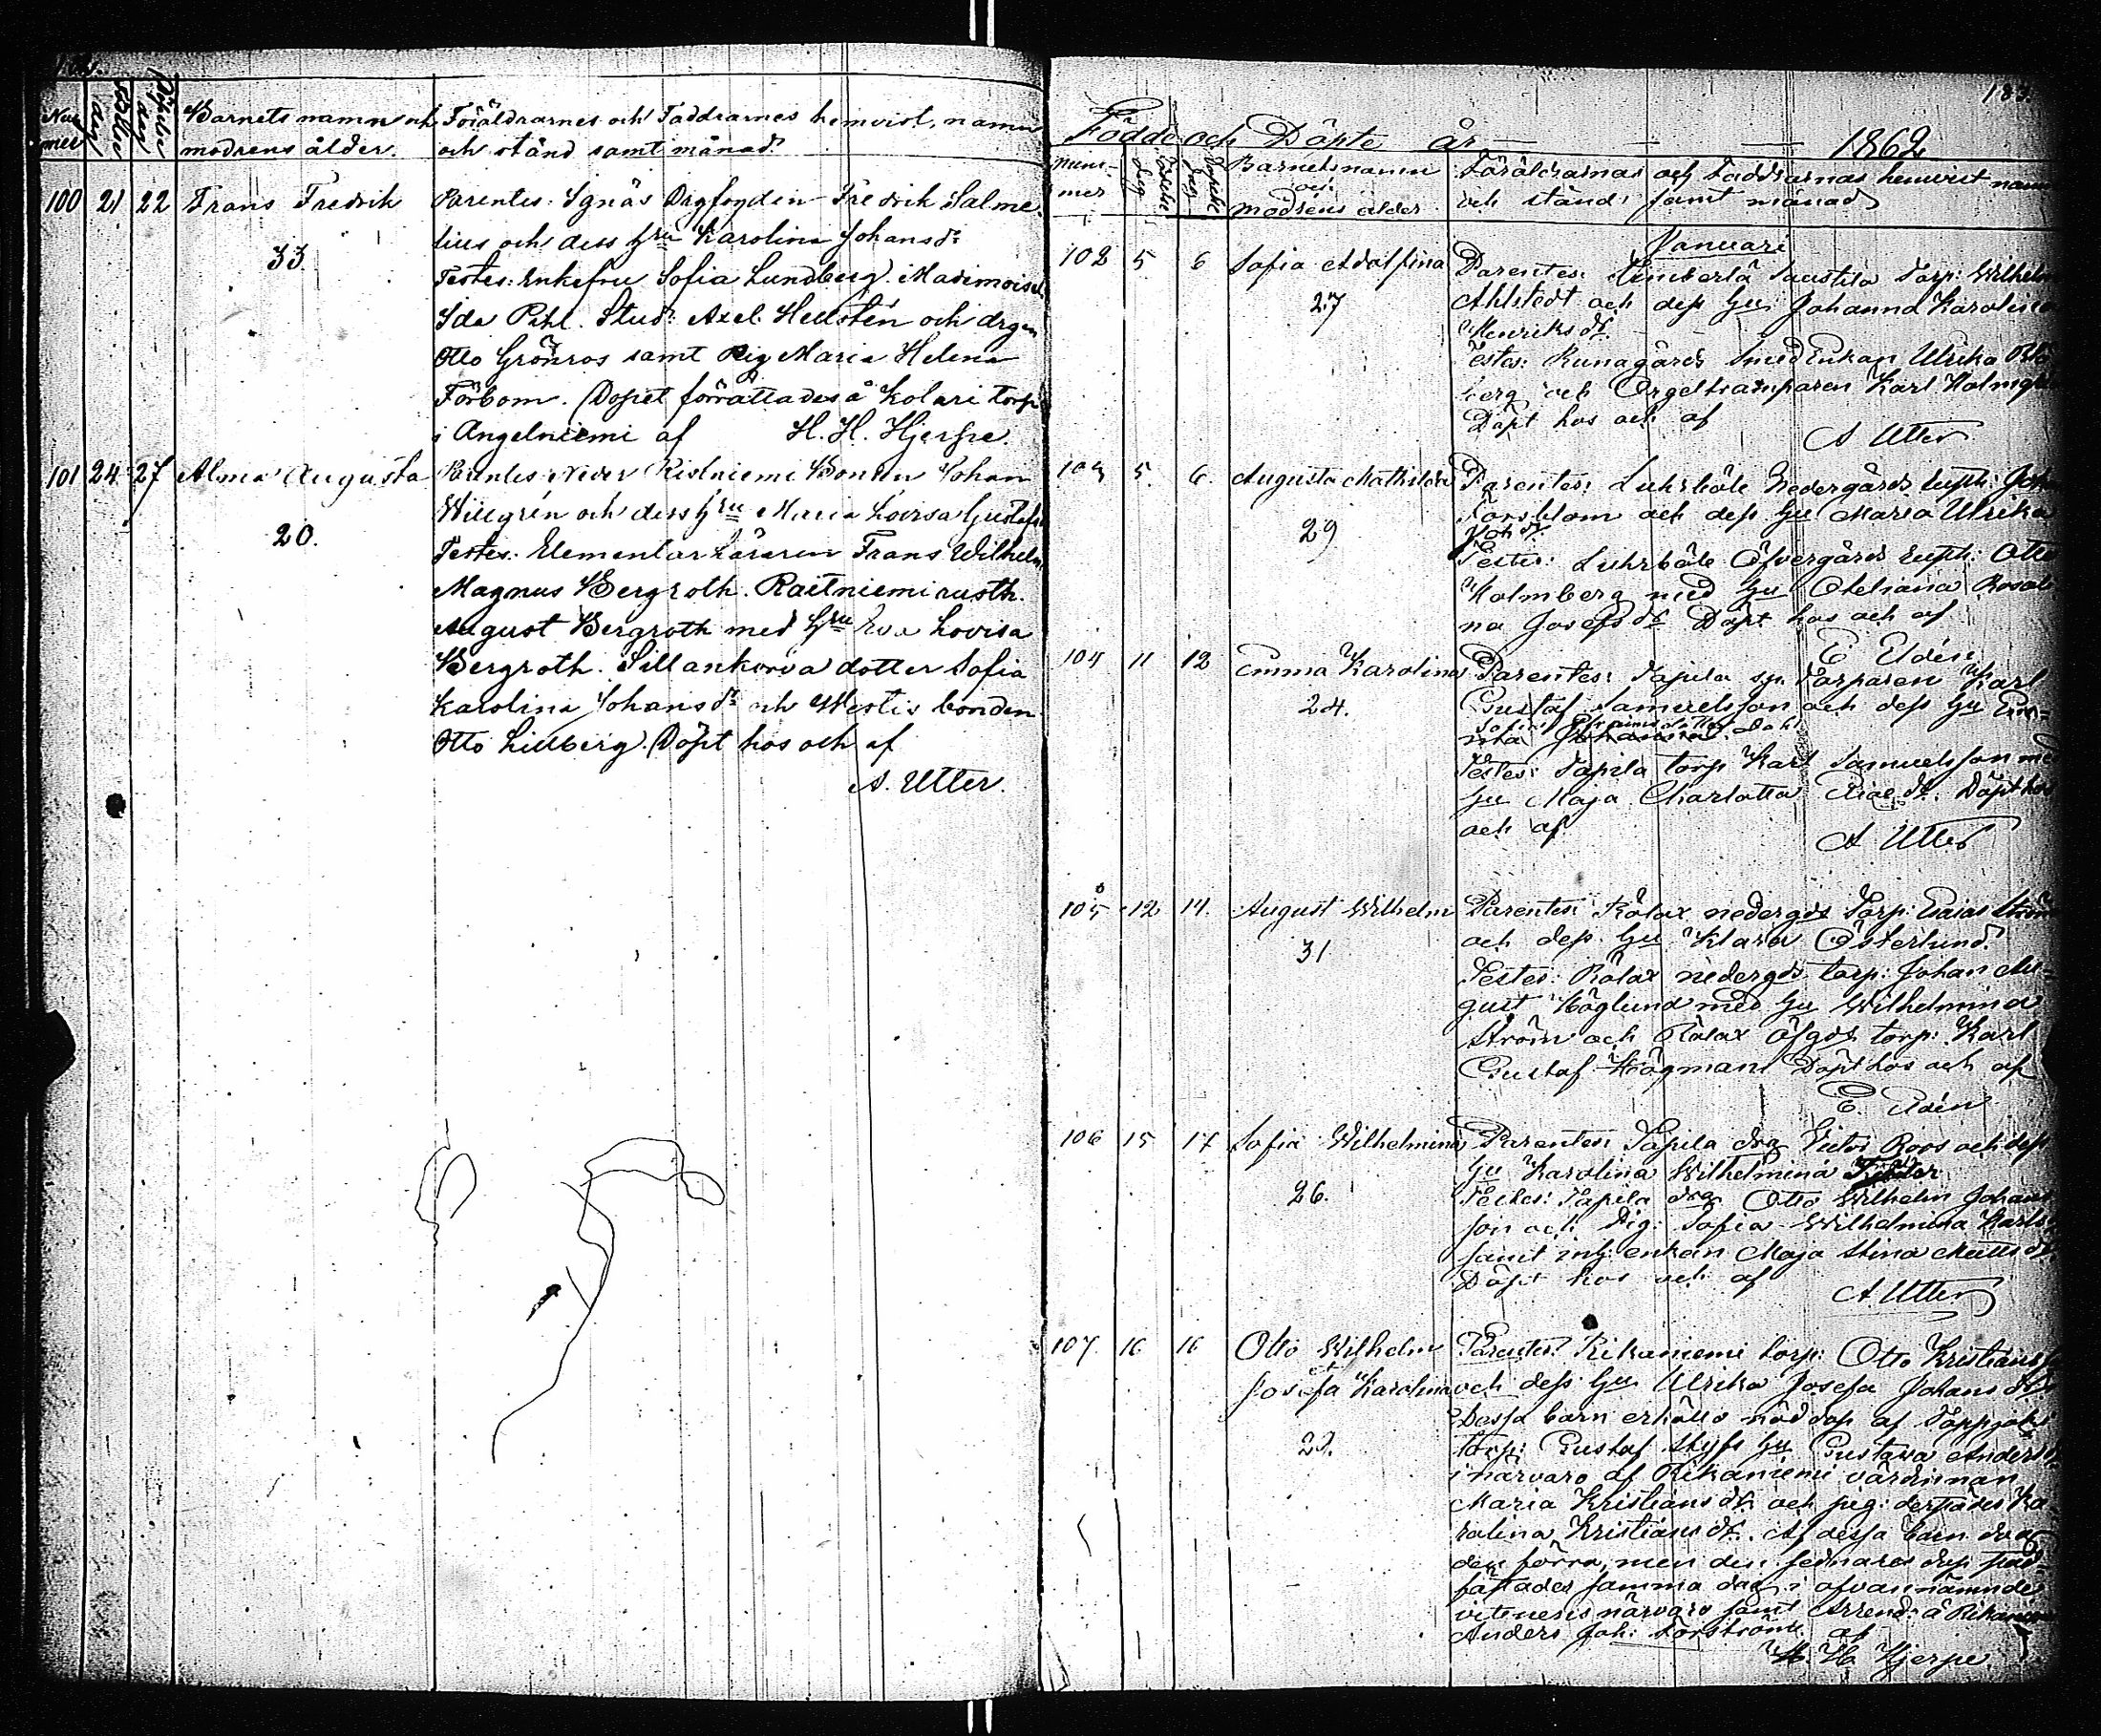 Nummer Födelse dag Döpelse dag Barnets namn och Föräldrarnes och Faddrarnes hemvist, namn
modrens ålder. och stånd samt månad.
100 21 22 Frans Fredrik Parentes: Sgnäs Drgfogden Fredrik Salme
33. lius och dess hru Karolina Johansdr
Testes: Enkefru Sofia Lundberg. Madmoisel
Ida Pihl. Stud: Axel Hellstén och drgen
Otto Grönroos samt Pig Maria Helena
Förbom. Dopet förrättades å Kolari torp
i Angelniemi af H. H. Hjerpe.
101 24. 27 Alma Augusta Parentes: Neder Ristniemi Bonden Johan
Willgrén och dess hru Maria Lovisa Gustafs
20. Testes: Elementarläraren Frans Wilhelm
Magnus Bergroth. Raitniemi rusth.
August Bergroth med hru Eva Lovisa
Bergroth. Sillankorva dotter Sofia
Karolina Johansdr och Westis bonden
Otto Lillberg. Döpt hos och af
A. Utter.
Födde och Döpte år 1862
Nummer Födelse dag Döpelse dag Barnets namn och Föräldrarnas och Faddrarnas hemvist namn
modrens ålder och stånd samt månad
Januari
102 5 6 Sofia Adolfina Parentes: Torp: Wilhelm
27 Ahlstedt och dess hu Johanna Karolina
Henriksdr.
Testes: Runagårds smedEnkan Ulrika
berg och Orgeltramparen Karl Holmqv
Döpt hos och af
A Utter
103 5. 6. Augusta Mathilda Parentes: Luhrböle Nedergårds
29 Forsblom och dess hu Maria Ulrika
Johdr.
Testes: Luhrböle Öfvergårds Otto
Holmberg med hu Otteliana Rosali
na Josefsdr Döpt hos och af
E Eldén
104 11 12 Emma Karolina Parentes: Tapila Torparen Karl
24. Gustaf Samuelsson och dess hu Eri-
Testes: Tapila torp Karl Samuelsson med
hu Maja Charlotta Döpt hos
och af
A Utter
105 12 14. August Wilhelm Parentes: Rölax nedergds Torp: Esaias Ström
31 och dess hu Klara Österlund.
Testes: Rölax nedergds torp: Johan Au-
gust Höglund med hu Wilhelmina
Ström och Rölax öfgds torp: Karl
Gustaf Högman Döpt hos och af
E. Eldén
106 15 17 Sofia Wilhelmina Parentes: Tapila drg Victor Roos och dess
hu Karolina Wilhelmina
26. Testes: Tapila drg Otto Wilhelm Johans
son och Pig: Sofia Wilhelmina Karls
samt inh: enkan Maja Stina Mattsdr
Döpt hos och af
A. Utter
107. 16 16 Otto Wilhelm Parentes: Rikaniemi torp: Otto Kristians
et
Josefa Karolina och dess hu Ulrika Josefa Johansdr
Dessa barn erhållo nöddop af
22. torp: Gustaf hu Gustava Anders
i närvaro af Rikaniemi värdinnan
Maria Kristiansdr och pig: derstädes Ka
rolina Kristiansdr. Af dessa barn dog
den förra, men den sednares dop stad-
fästades samma dag i ofvannämnde
vitnens närvaro samt Arrend: å Rikaniemi
Anders Joh: af
H. H. Hjerpe.